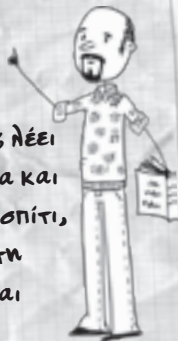 λέει
α και
σπίτι,
τη
αι